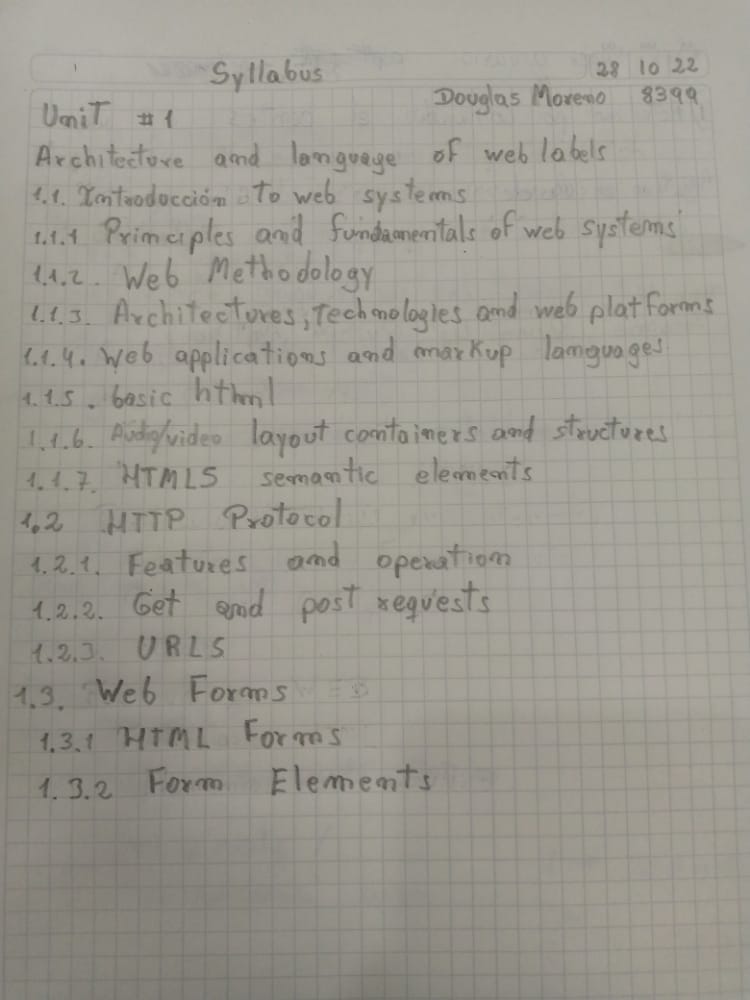 Syllabus 28 10 22
Douglas Moreno 8399
UniT #1
Architecture and language of web labels
1.1. Introducción to web systems
1.1.1 Principles and fundamentals of web systems
1.1.2. Web Methodology
1.1.3. Architectures, Technologies and web platforms
1.1.4. Web applications and markup languages
1.1.5. basic html
1.1.6. Audio/video layout containers and structures
1.1.7. HTML5 semantic elements
1.2 HTTP Protocol
1.2.1. Features and operation
1.2.2. Get and post requests
1.2.3. URLS
1.3. Web Forms
1.3.1 HTML Forms
1.3.2 Form Elements